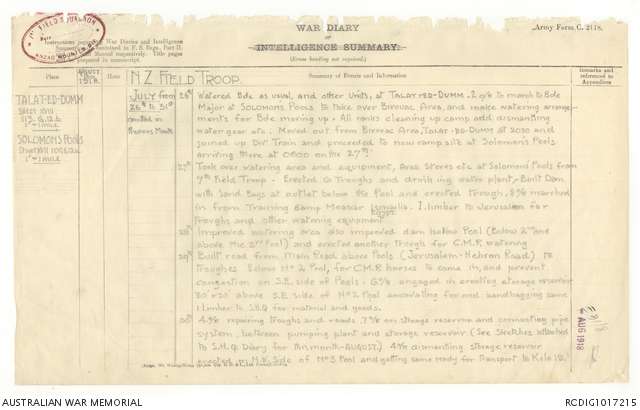 WAR DIARY
INTELLIGENCE SUMMARY.
(Erase heading not required)
Army Form C. 2118.
FIELD SQUADRON
ANZAC MOUNTED DIV
Instructions regarding War Diaries and Intelligence
Summaries are contained in F. S. Regs., Part II.
Manual respectively. Title pages
prepared in manuscript.
Place
AUGUST
1918
Hour
N Z FIELD TROOP.
Summary of Events and Information
Remarks and
referenced to
Appendices
TALAT-ED-DUMM
SHEET XVIII
1" = 1 MILE
SOLOMONS POOLS
1" = 1 MILE
JULY from
26th to 31st
omitted in
Previous Month
26th Watered Bde as usual, and other Units, at TALAT-ED-DUMM. 2 O/R to march to Bde
Major at SOLOMONS POOLS to take over Bivouac Area, and make watering arrange-
ments for Bde moving up. All ranks cleaning up camp and dismantling
water gear etc. Moved out from Bivouac Area, TALAT-ED-DUMM at 2030 and
joined up Div. Train and proceeded to new camp site at Solomon's Pools
arriving there at 0600 on the 27th.
27th Took over watering area and equipment, Area Stores etc at Solomons Pools from
7th Field Troop. Erected 6 Troughs and drinking water plant, Built Dam
with Sand Bags at outlet below the Pool and erected trough, 8 O/R marched
in from Training Camp Moascar Ismailia. 1. limber to Jerusalem for
Egypt.
troughs and other watering equipment
28th Improved watering area also improved dam below Pool (Below 2nd and
above the 3rd Pool) and erected another trough for C.M.R watering
29th Built road from Main Road above Pools (Jerusalem-Hebron Road) to
Troughs Below No 2 Pool, for C.M.R horses to come in, and prevent
congestion on S.E. side of Pools. 6 O/R engaged in erecting storage reservoir
above S.E. side of No 2 Pool excavating for and sandbagging same
1 limber to S.H.Q for material and goods.
30th 4 O/R repairing troughs and roads 7 O/R on storage reservoir and connecting pipe
system, between pumping plant and storage reservoir. (See Sketches attached
to S.H.Q. Diary for this month-AUGUST.) 4 O/R dismantling storage reservoir
erected on N.E. Side of No 3 Pool and getting same ready for Transport to Kilo 10.
AUG 1918
AUSTRALIAN WAR MEMORIAL
RCDIG1017215